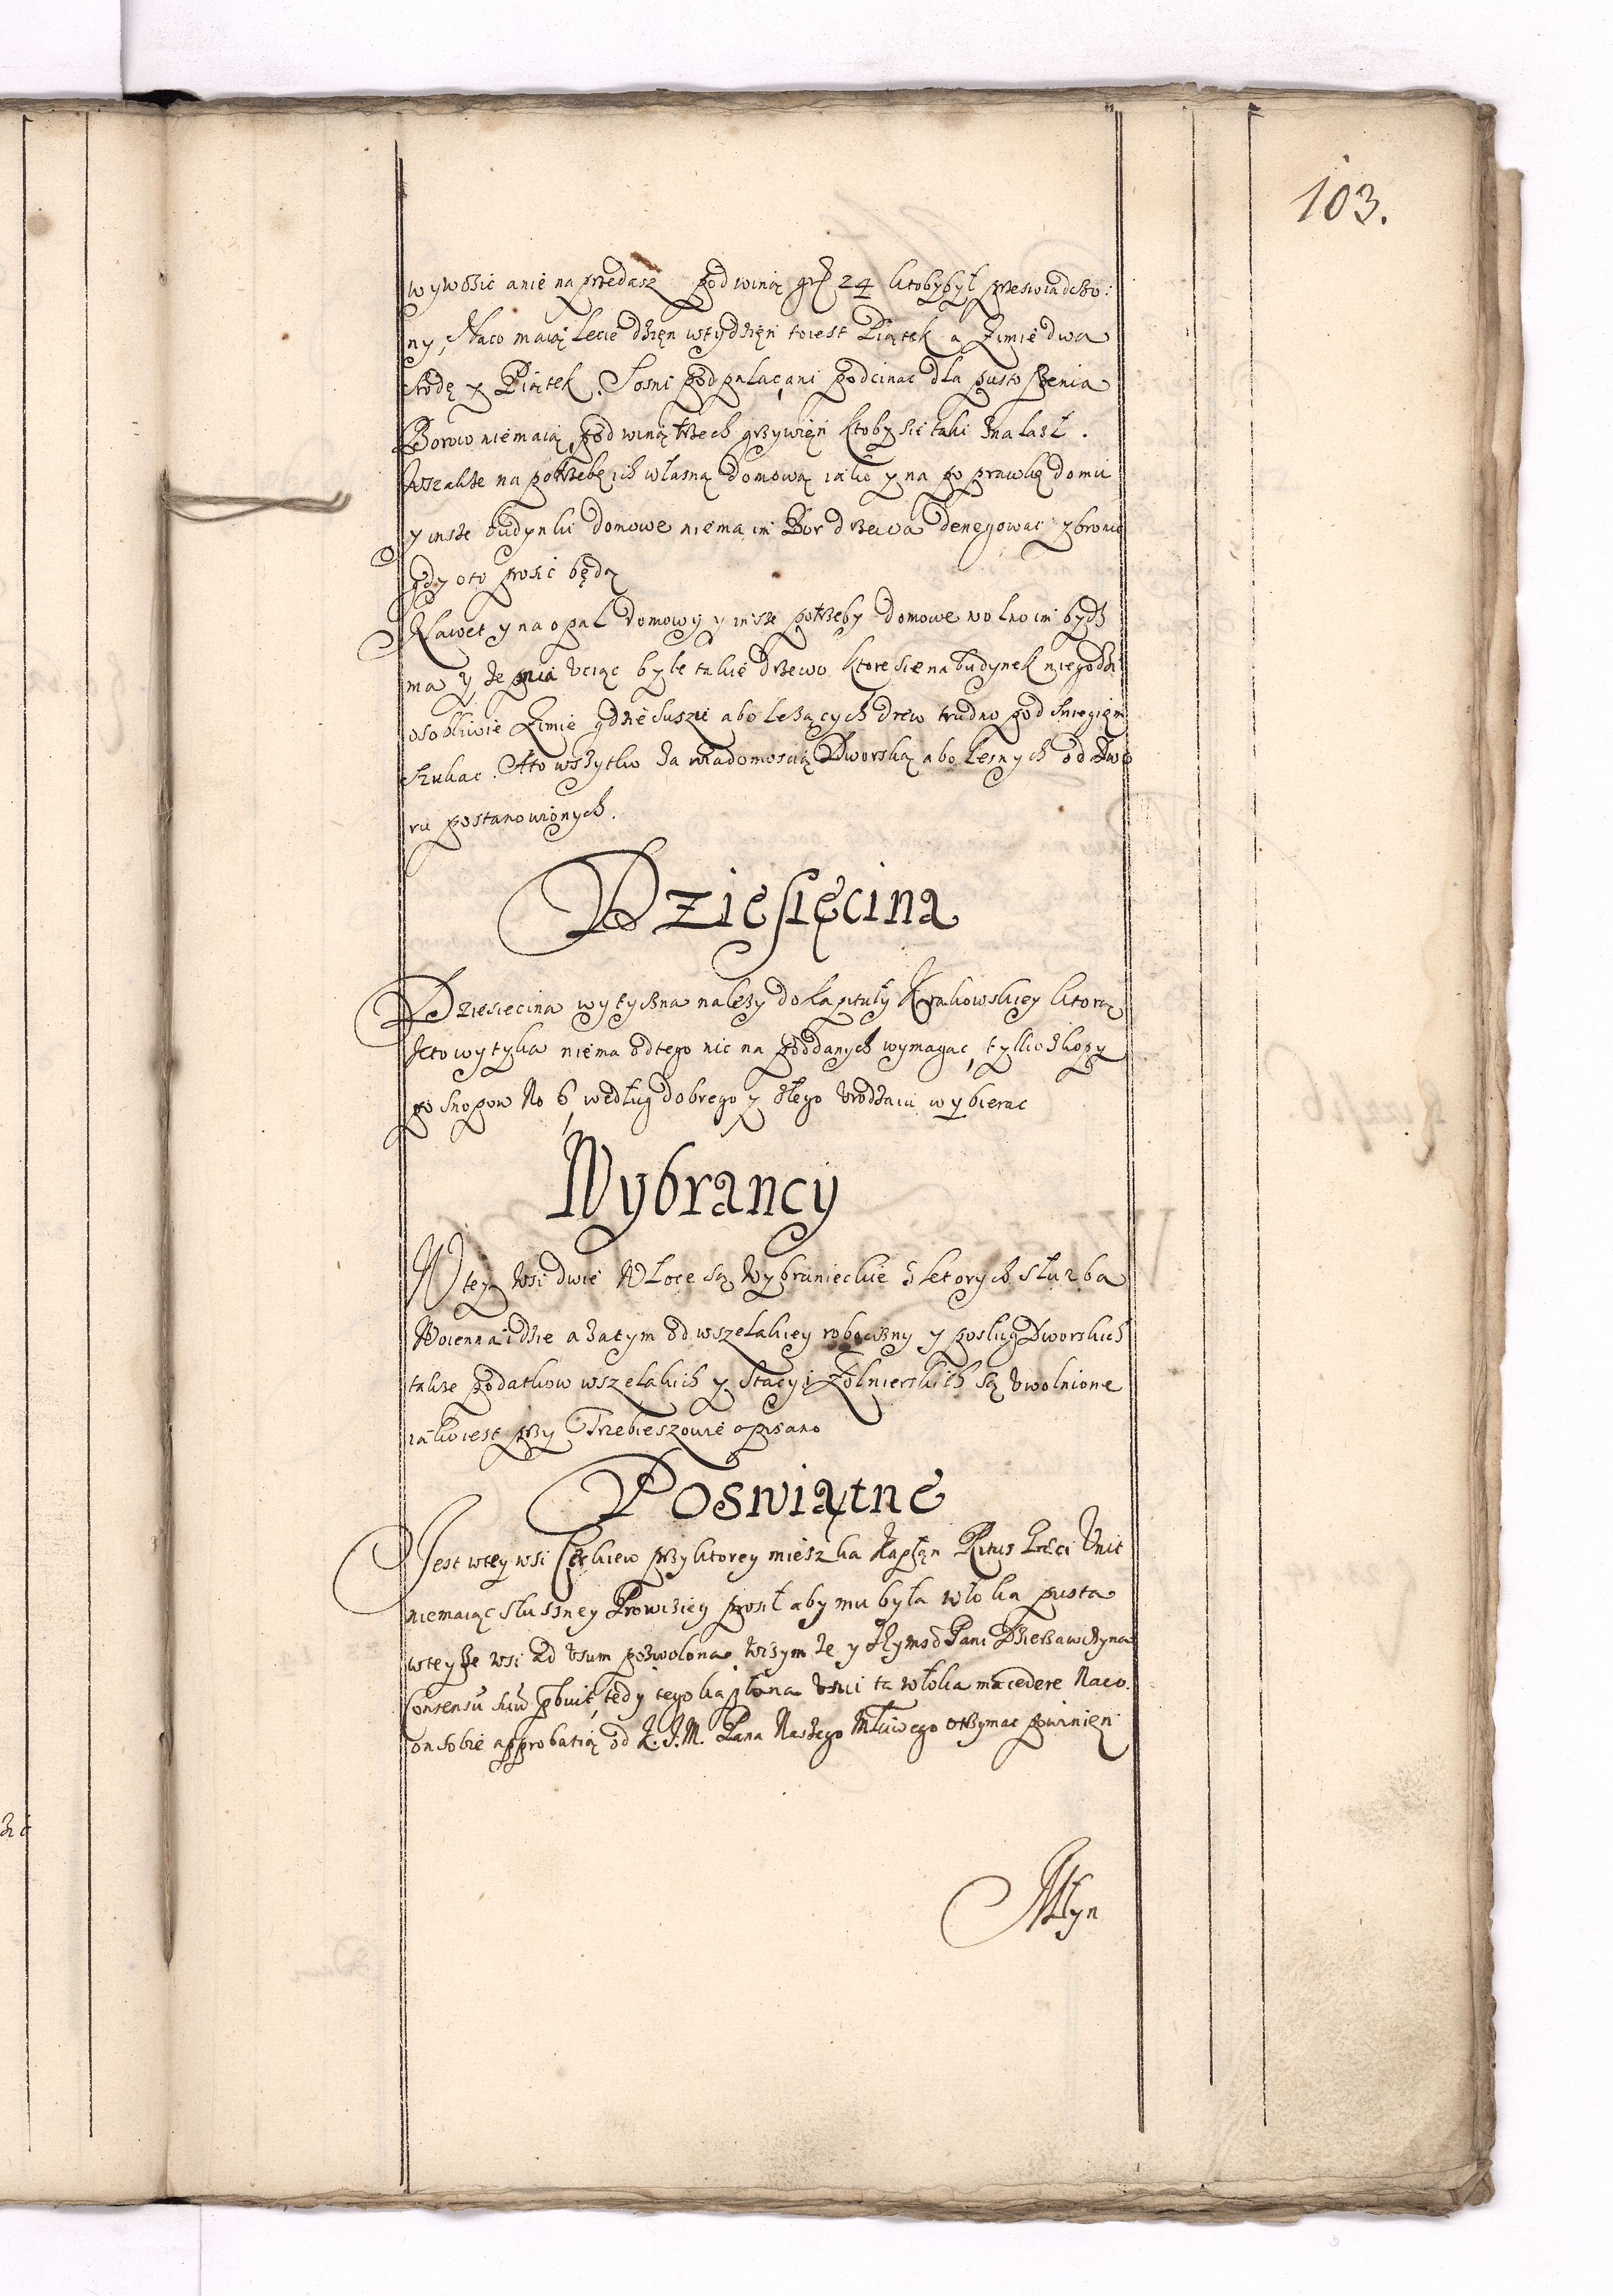 103.
wywozic anie na przedasz pod winą grz 24 ktobybył przeswiadczo:
ny, Naco maią Lecie dzięn wtydzięn toiest Piątek a Zimie dwa
srodę y Piątek. Sosni podpalac, ani podcinac dla pusto szenia
Borow niemaią, pod winą trzech grzywięn ktoby sie taki znalasł.
Wszakze na potrzebę ich własną domową iako y na poprawkę domu
y insze budynki domowe niema im Bor drzewa denegowac y bronic
gdy oto prosic będą
Nawet y na opał domowy y insze potrzeby domowe wolno im bydz
ma y ze pnia uciąc byle takie drzewo ktore sie na budynek niegodzi
osobliwie Zimie gdzie suszi abo lezących drew trudno pod sniegięm
szukac. Ato wszytko za wiadomoscią Dworską abo Lesnych od Dwo
ru postanowionych.
Dziesięcina
Dziesiecina wytyczna nalezy do Kapituły Krakowskiey ktorą
kto wytyka niema odtego nic na poddanych wymagac, tylko zkopy
po snopow No 6, według dobrego y złego urodzaiu wybierac
Wybrancy
W tey wsi dwie Włoce są Wybranieckie z ktorych służba
Woienna idzie a zatym od wszelakiey robocizny y posług Dworskich
takze podatkow wszelakich y Stacyi Zołnierskich są uwolnione
iako iest przy Trzebieszowie opisano
Poswiątne
Jest wtey wsi Cerkiew przy ktorey mieszka Kapłan Ritus Græci Unit
niemaiąc slusney Prowiziey prosił aby mu była włoka pusta
wteyze wsi ad usum pozwolona, wczym ze y Jeymsc Pani Dzierzawczyna
Consensũ suũ pbuit, tedy tego kapłana usui ta włoka ma cedere Naco.
on sobie approbatią od K. J. M. Pana Naszego Młciwego otrzymac powinien
Młyn